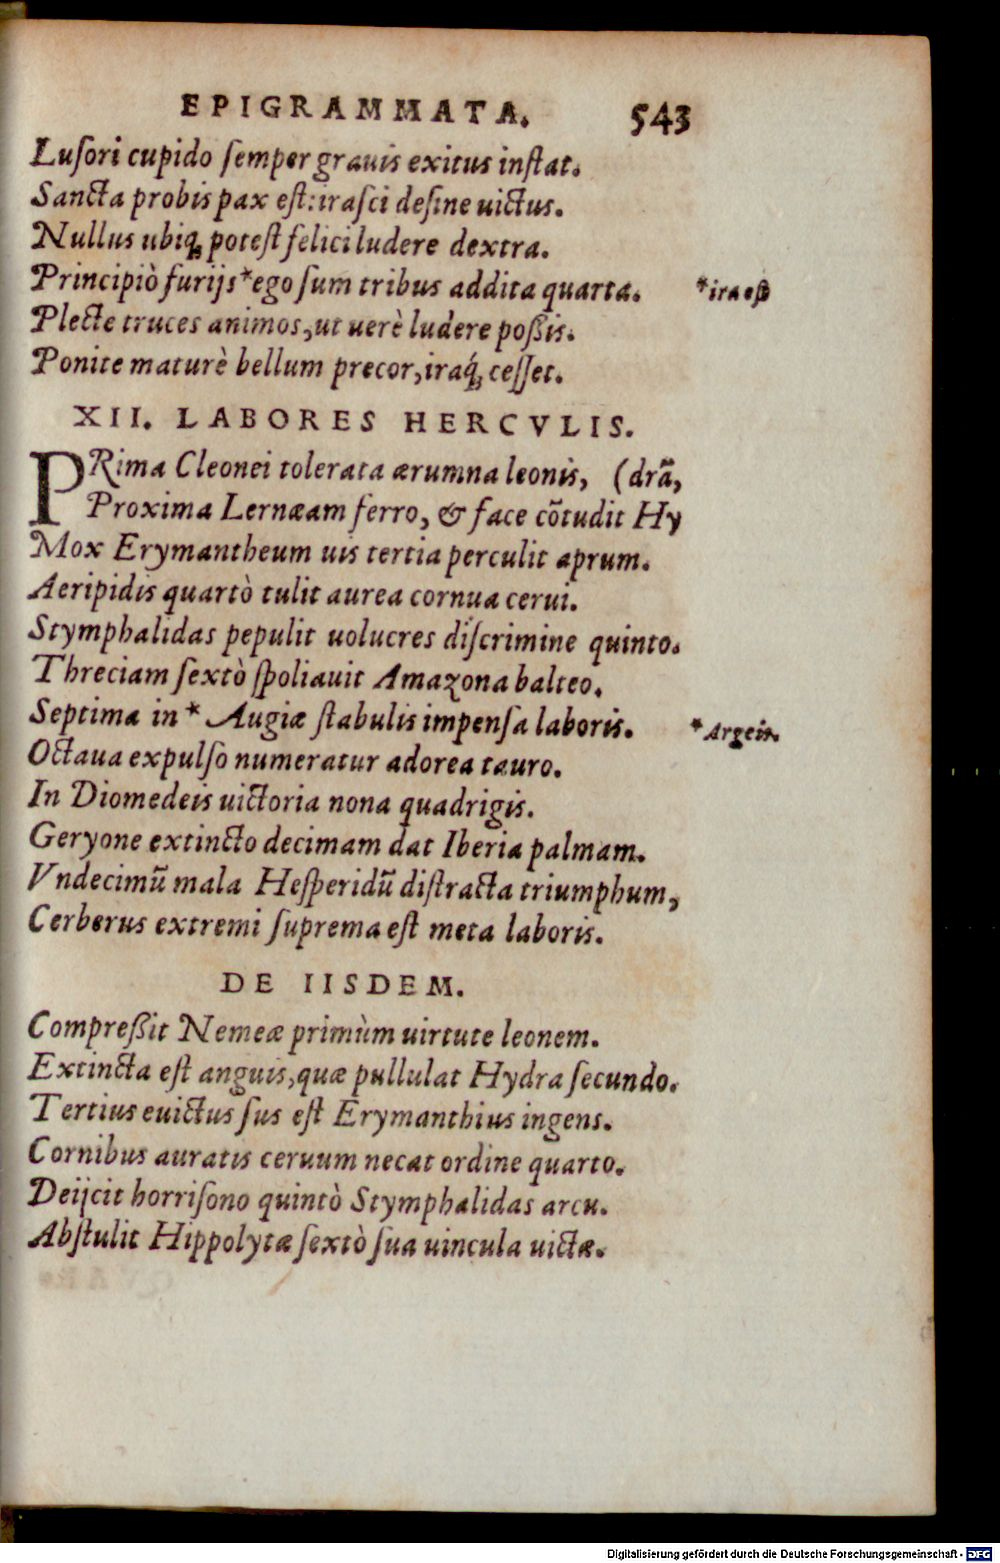 EPIGRAMMATA. 543
Luſori cupido ſemper grauis exitus inſtat.
Sancta probis pax eſt: iraſci deſine uictus.
Nullus ubiq; poteſt felici ludere dextra.
Principiò furijs * ego ſum tribus addita quarta. * ira eſt
Plecte truces animos, ut uerè ludere poßis.
Ponite maturè bellum precor, iraq́; ceſſet.
XII. LABORES HERCVLIS.
PRima Cleonei tolerata ærumna leonis, (drã,
Proxima Lernæam ferro, & face cõtudit Hy
Mox Erymantheum uis tertia perculit aprum.
Aeripidis quartò tulit aurea cornua cerui.
Stymphalidas pepulit uolucres diſcrimine quinto.
Threciam ſextò ſpoliauit Amazona balteo.
Septima in * Augiæ ſtabulis impenſa laboris. * Argeis.
Octaua expulſo numeratur adorea tauro.
In Diomedeis uictoria nona quadrigis.
Geryone extincto decimam dat Iberia palmam.
Vndecimũ mala Heſperidũ diſtracta triumphum,
Cerberus extremi ſuprema eſt meta laboris.
DE IISDEM.
Compreßit Nemeæ primùm uirtute leonem.
Extincta eſt anguis, quæ pullulat Hydra ſecundo.
Tertius euictus ſus eſt Erymanthius ingens.
Cornibus auratis ceruum necat ordine quarto.
Deijcit horriſono quintò Stymphalidas arcu.
Abſtulit Hippolytæ ſextò ſua uincula uictæ.
Digitalisierung gefördert durch die Deutsche Forschungsgemeinschaft - DFG